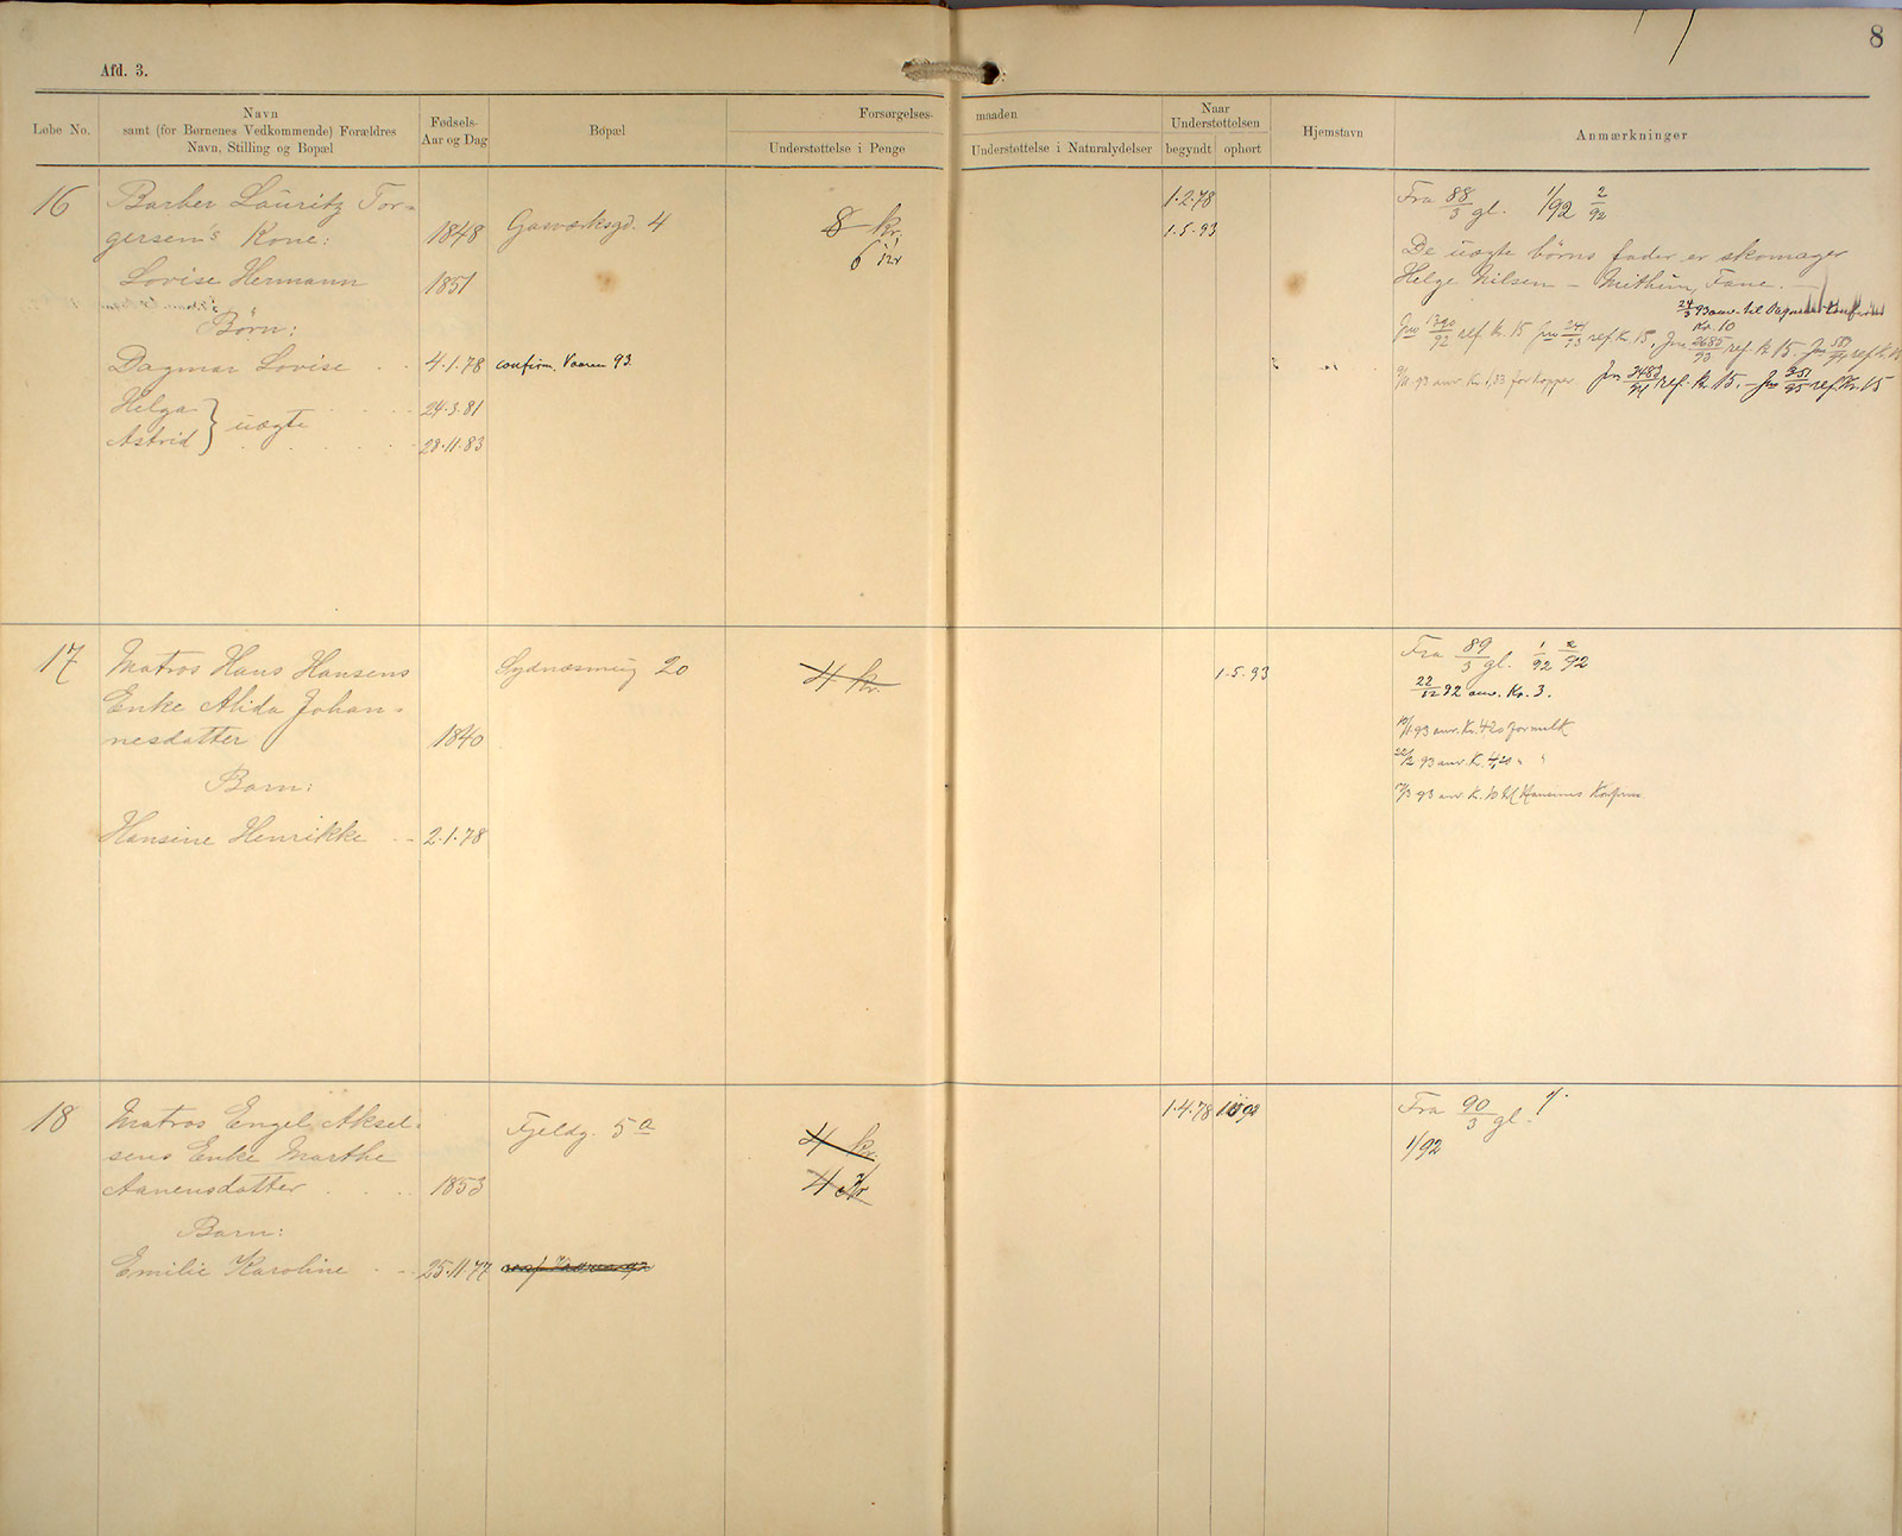 8
Afd. 3.
Løbe No.
Navn
samt (for Børnenes Vedkommende) Forældres
Navn, Stilling og Bopæl
Fødsels-
Aar og Dag
Bopæl
Forsørgelses-
maaden
Understøttelse i Penge
Understøttelse i Naturalydelser
Naar
Understøttelsen
begyndt
ophørt
Hjemstavn
Anmærkninger
16
Barber Lauritz Tor-
gersen's Kone:
1848
Lovise Hermann
1851
Børn:
Dagmar Lovise
4.1.78
confirm. Vaaren 93.
Helga
24.3.81
uægte
Astrid
28.11.83
Gasværksgd. 4
8 kr.
6 kr
1.2.78
1.5.93
Fra 88/3 gl. 1/92 2/92
De uægte børns fader er skomager
Helge Nilsen - Mithun, Fane.
24/3 93 anv. til Dagmars Konfirm
Kr. 10
Jno 1390/92 ref. kr. 15 Jno 241/93 ref. kr. 15, Jno 2685/93 ref. kr 15. Jno
93 anv. Kr. 1,33 for kopper. Jno 3483/94 ref. kr 15. - Jno 351/95 ref. Kr. 15
17
Matros Hans Hansens
Enke Alida Johan-
nesdatter
1840
Barn:
Hansine Henrikke
2.1.78
Sydnæsmug 20
4 kr.
1.5.93
Fra 89/3 gl. 1/92 2/92
22/12 92 anv. Kr. 3.
19/1 93 anv. Kr. 4.20 for melk
22/2 93 anv. Kr. 4,20 " "
93 anv. Kr. 10 til Hansines Konfirm.
18
Matros Engel Aksel-
sens Enke Marthe
Aanensdatter
1853
Barn:
Emilie Karoline
25.11.77
Fjeldg. 5 a
4 kr.
4 Kr
1.4.78
Fra 90/3 gl.
1/92